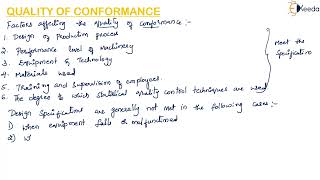 QUALITY OF CONFORMANCE
Ekeeda
Factors affecting the quality of conformance :-
1. Design of Production process
2. Performance level of Machinery
3. Equipment & Technology
4. Materials used
5. Training and Supervision of employees.
6. The degree to which statistical quality control techniques are used
Meet the
Specification
Design Specifications are generally not met in the following cases:-
1) When equipment fails or malfunctioned
2) W